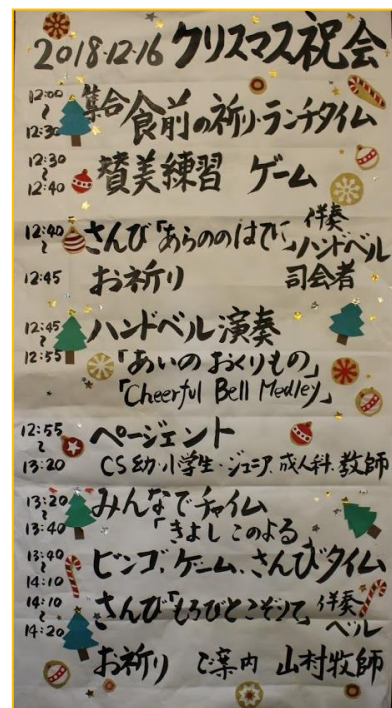 2018.12.16 クリスマス祝会
12:00～12:30 集合 食前の祈り・ランチタイム
12:30～12:40 賛美練習 ゲーム
12:40～12:45 さんび「あらののはてに」 伴奏 ハンドベル
お祈り 司会者
12:45～12:55 ハンドベル演奏
「あいのおくりもの」
「Cheerful Bell Medley」
12:55～13:20 ページェント
CS幼・小学生・ジュニア、成人科、教師
13:20～13:40 みんなでチャイム
「きよしこのよる」
13:40～14:10 ビンゴ、ゲーム、さんびタイム
14:10～14:20 さんび「もろびとこぞりて」 伴奏 ベル
お祈り ご案内 山村牧師